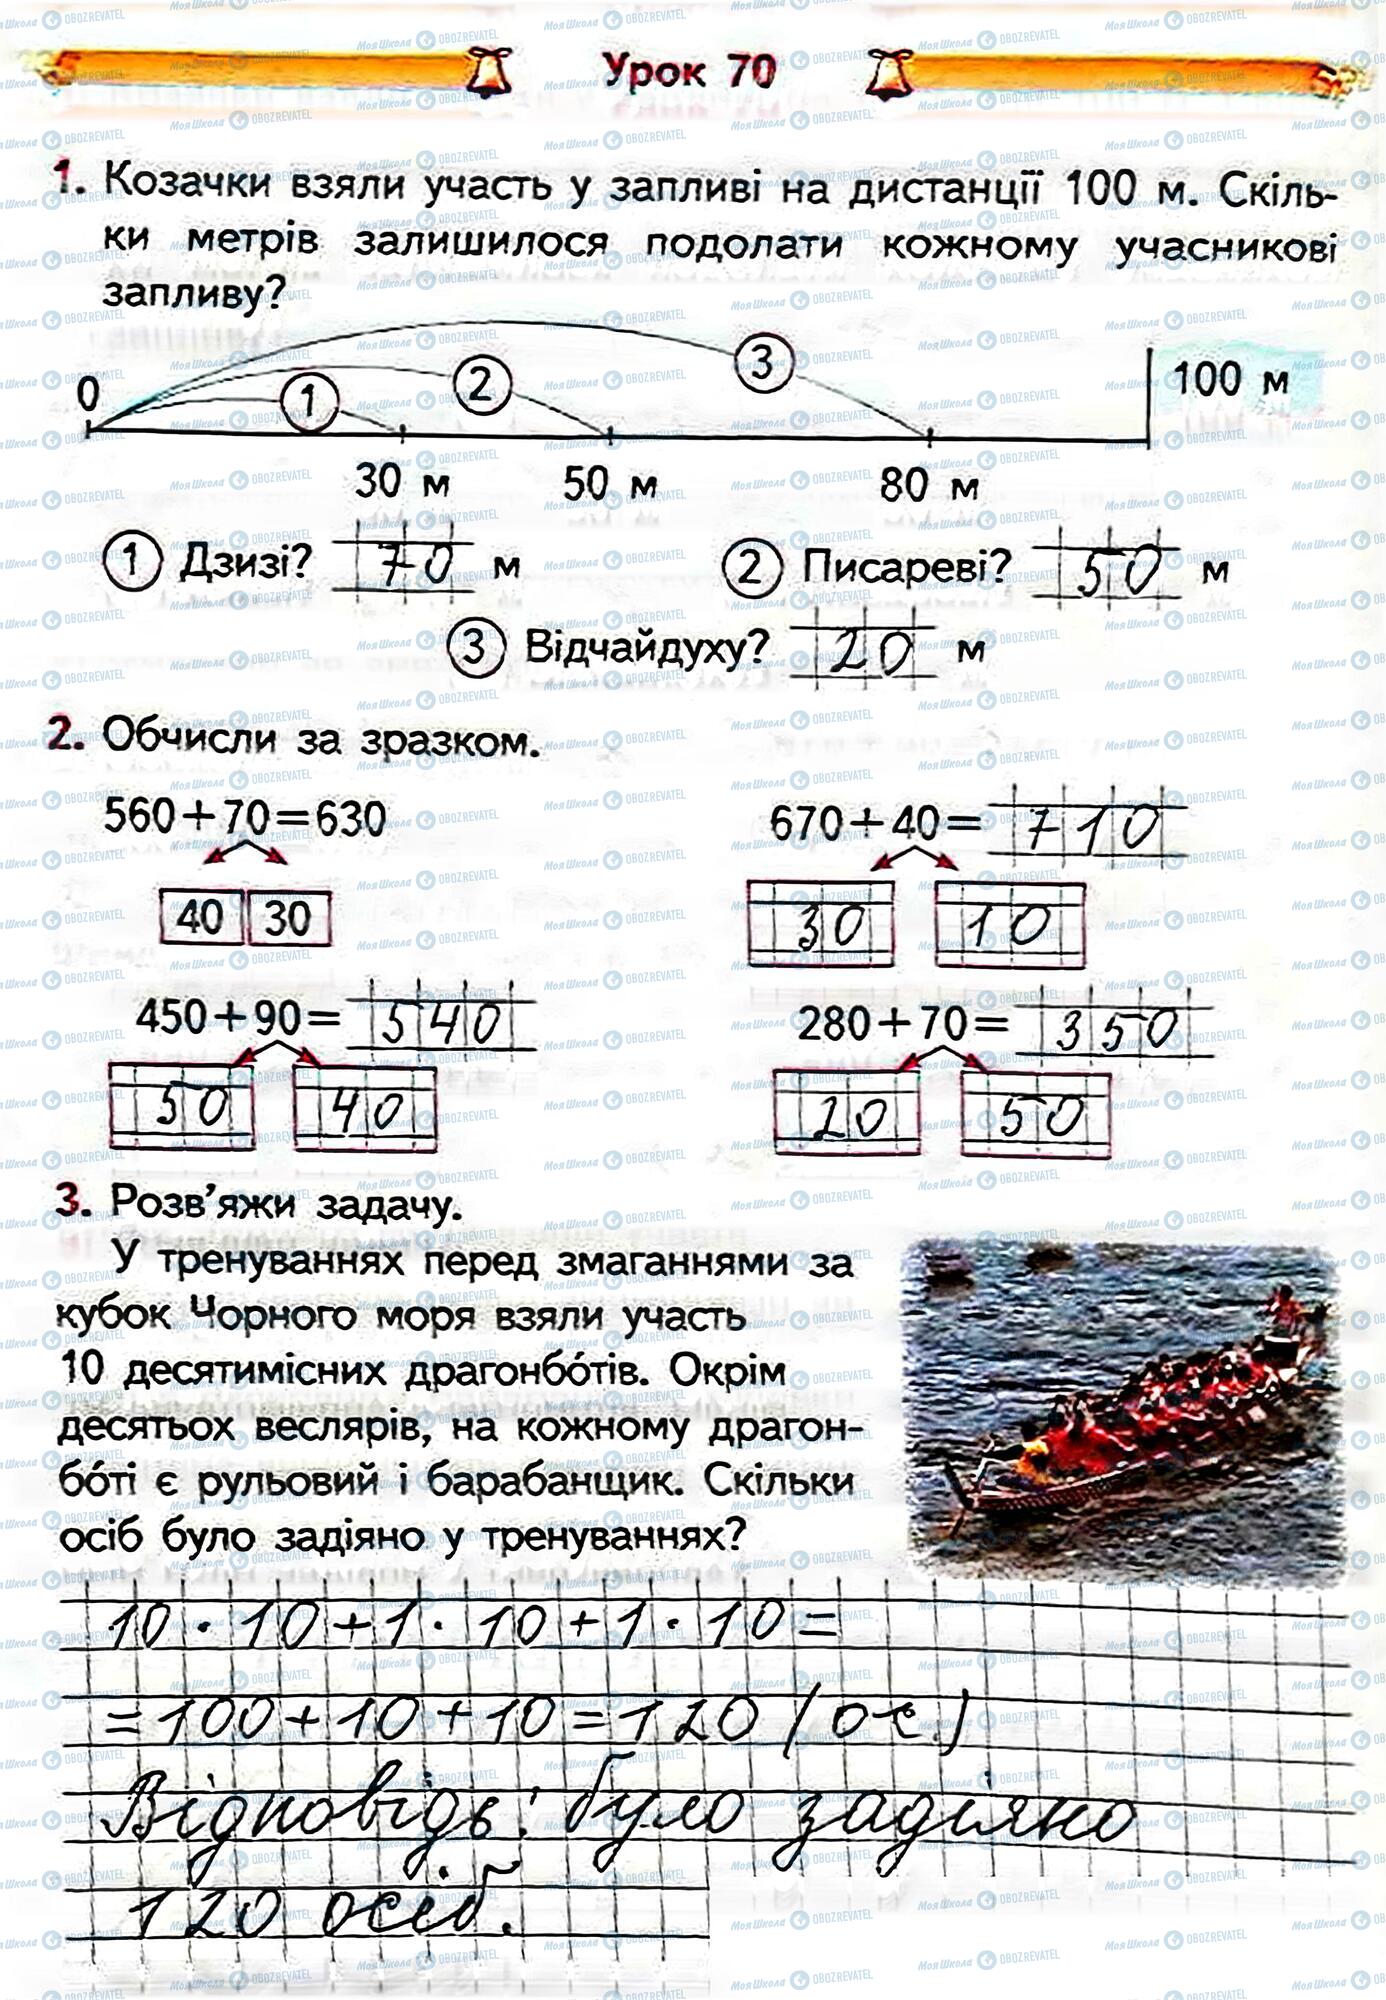 Урок 70
1. Козачки взяли участь у запливі на дистанції 100 м. Скіль-
ки метрів залишилося подолати кожному учасникові
запливу?
0 1 2 3 100 м
30 м 50 м 80 м
1 Дзизі? 70 м 2 Писареві? 50 м
3 Відчайдуху? 20 м
2. Обчисли за зразком.
560+70=630 670+40= 710
40 30 30 10
450+90= 540 280+70= 350
50 40 20 50
3. Розв'яжи задачу.
У тренуваннях перед змаганнями за
кубок Чорного моря взяли участь
10 десятимісних драгонбо́тів. Окрім
десятьох веслярів, на кожному драгон-
бо́ті є рульовий і барабанщик. Скільки
осіб було задіяно у тренуваннях?
10 · 10 + 1 · 10 + 1 · 10 =
= 100 + 10 + 10 = 120 (ос.)
Відповідь: було задіяно
120 осіб.
МояШкола OBOZREVATEL